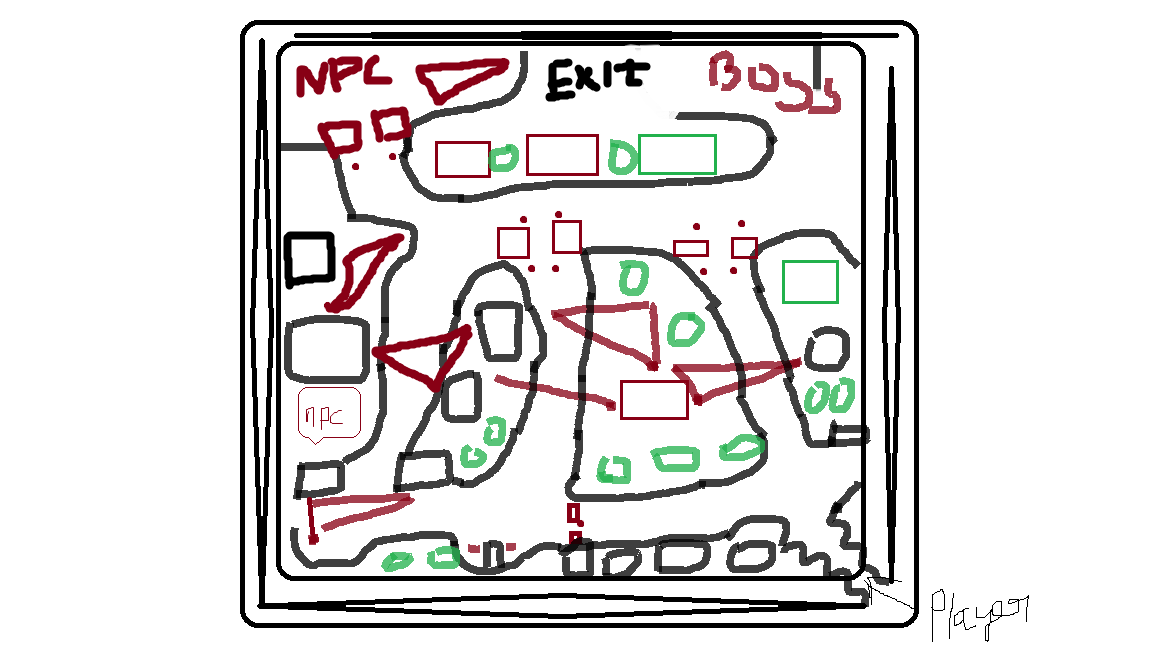 NPC
EXIT
BOSS
NPC
Player